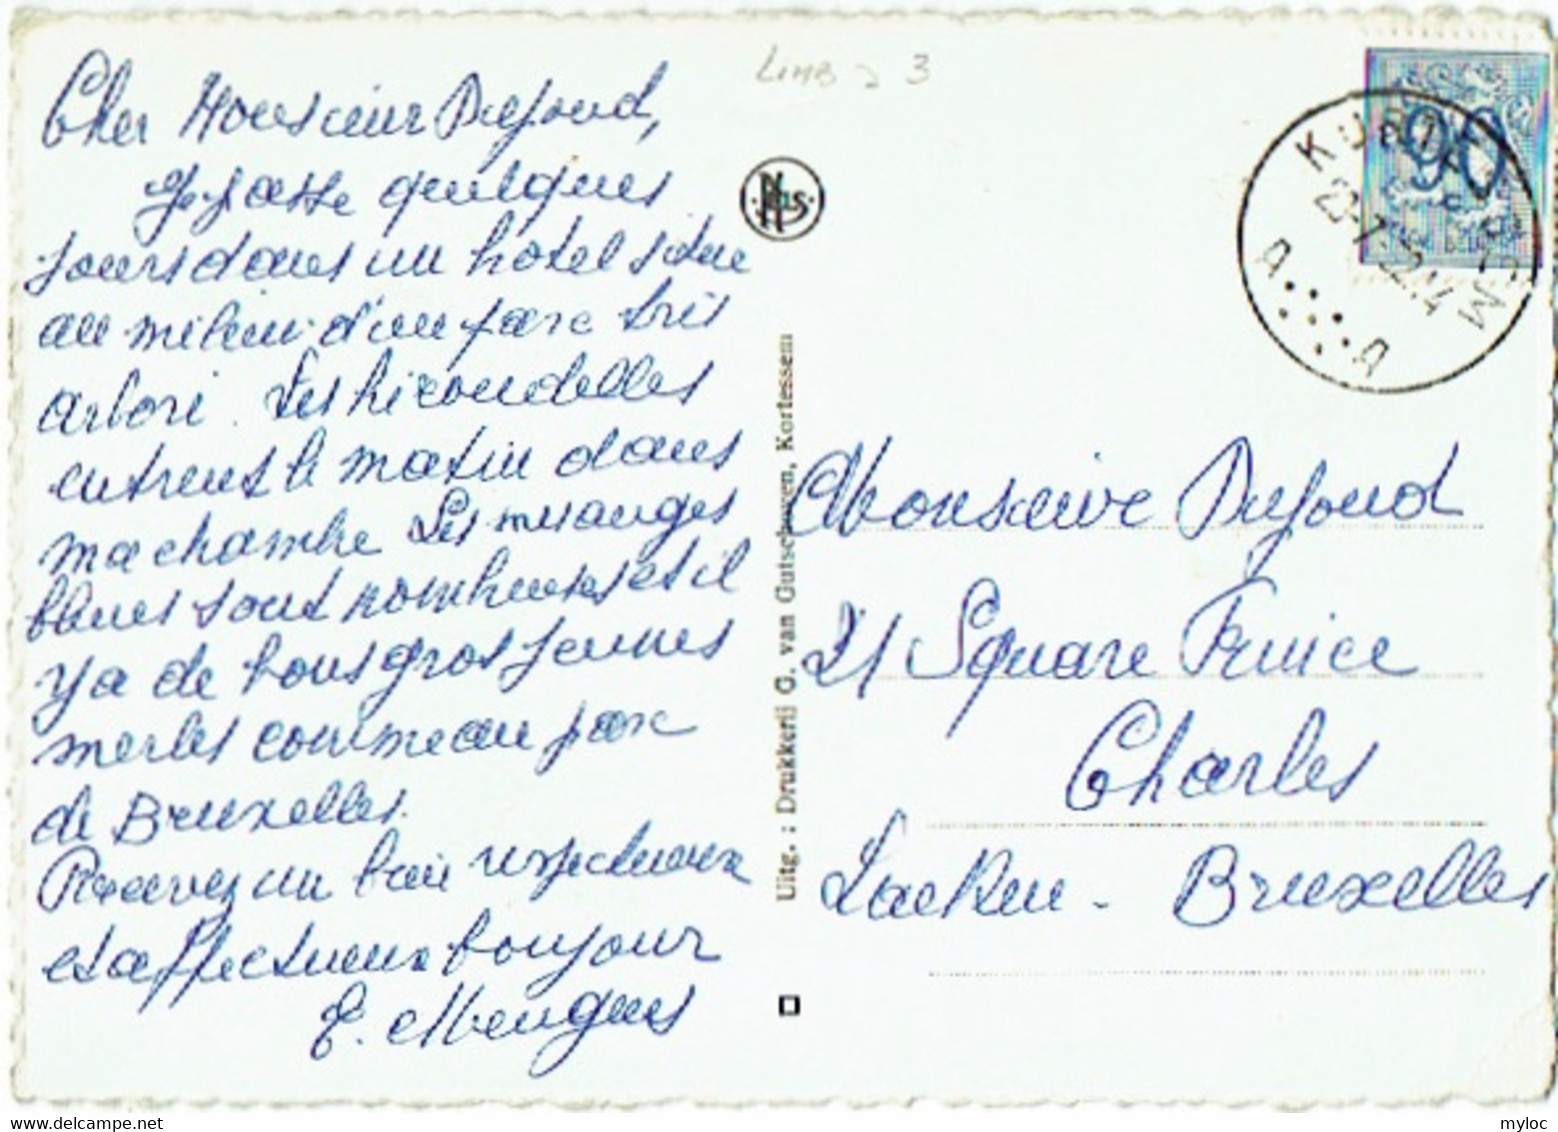 LIMB 3
Cher Monsieur Dufond,
Je passe quelques
jours dans un hotel situe
au milieu d'un parc très
arboré. Les hirondelles
entrent le matin dans
ma chambre Les mesanges
bleues sont nombreuses et il
y a de bons gros jeunes
merles comme au parc
de Bruxelles.
Recevez un bien respectueux
et affectueux bonjour
E. Meugens
Nels
Uitg. : Drukkerij G. van Gutschoven, Kortessem
90
BELGIE
KORTESSEM
23-7-52.14
A A
Monsieur Dufond
21 Square Prince
Charles
Laeken - Bruxelles
www.delcampe.net
myloc